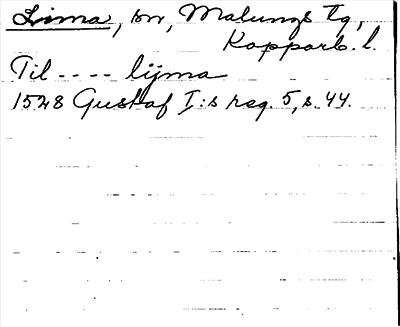 Lima, sn, Malungs tg,
Kopparb. l.
Til ---- lijma
1528 Gustaf I:s reg. 5, s. 44.